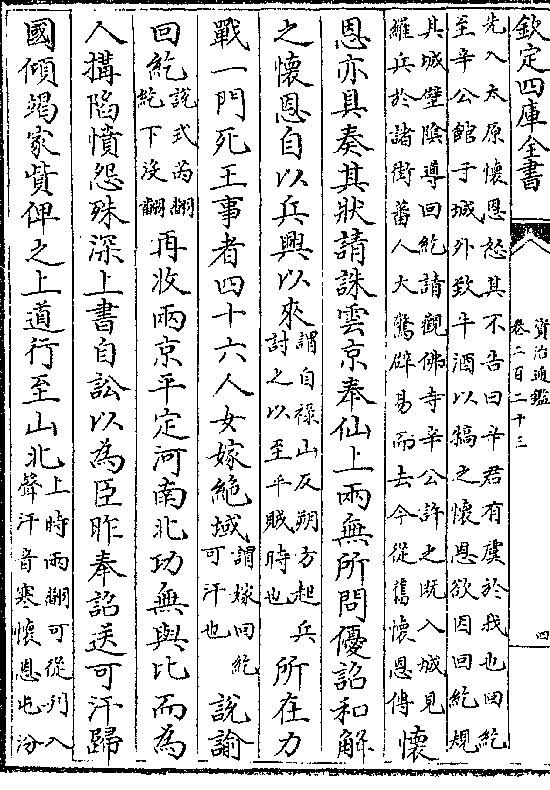 欽定四庫全書
資治通鑑
卷二百二十三
四
先入太原懷恩怒其不告曰辛君有虞於我也回紇
至辛公館于城外致牛酒以犒之懷恩欲因回紇規
其城壁陰導回紇請觀佛寺辛公許之既入城見
羅兵於諸街蕃人大驚辟易而去今從舊懷恩傳
懷
恩亦具奏其狀請誅雲京奉仙上兩無所問優詔和解
之懷恩自以兵興以來
謂自祿山反朔方起兵
討之以至平賊時也
所在力
戰一門死王事者四十六人女嫁絶域
謂嫁回紇
可汗也
說諭
回紇
說式芮翻
紇下沒翻
再收兩京平定河南北功無與比而為
人搆陷憤怨殊深上書自訟以為臣昨奉詔送可汗歸
國傾竭家貲俾之上道行至山北
上時兩翻可從刋入
聲汗音寒懷恩屯汾